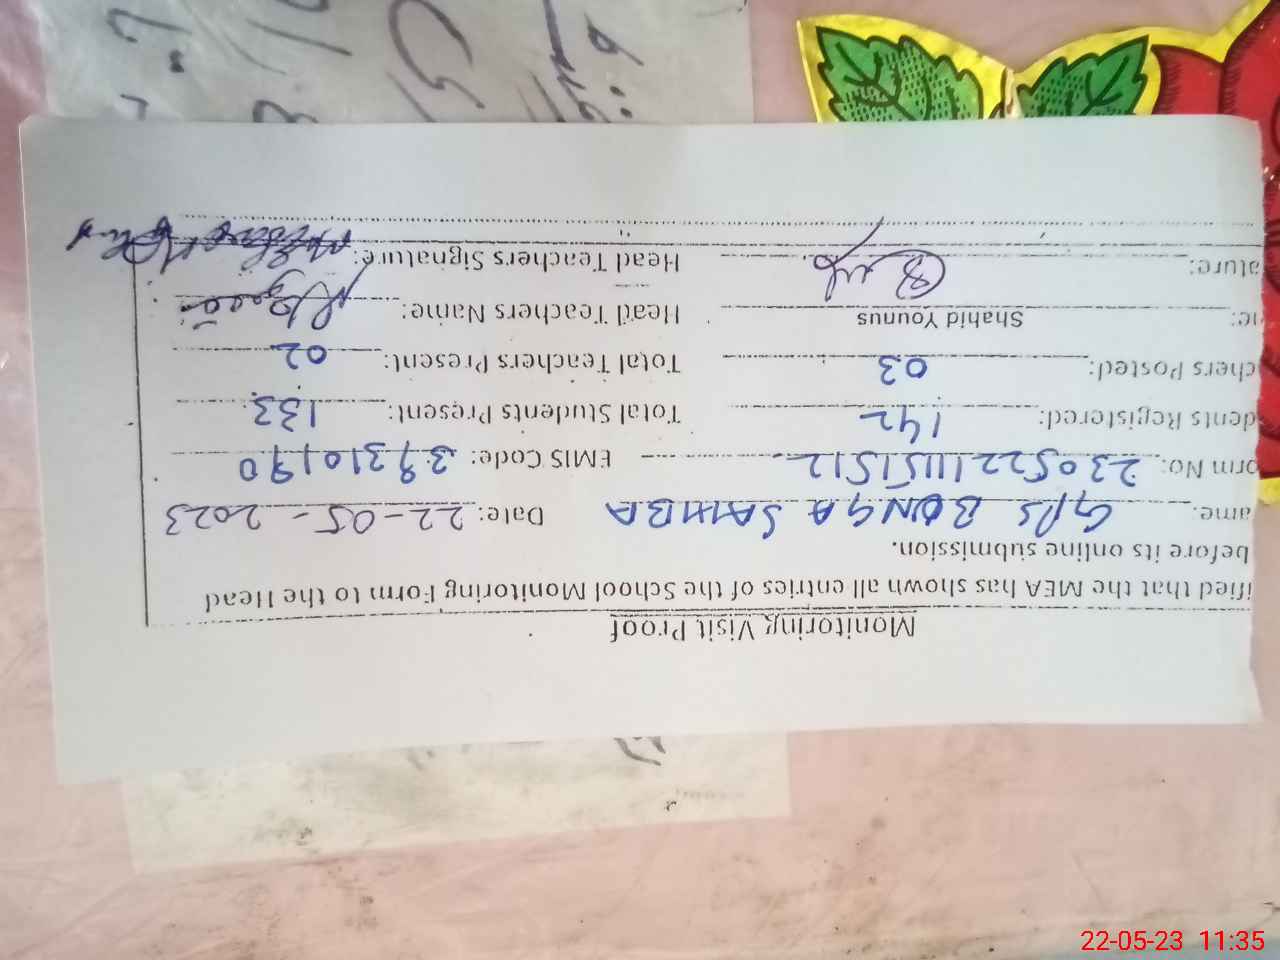 Monitoring Visit Proof
ified that the MEA has shown all entries of the School Monitoring Form to the Head
before its online submission.
ame: GPS BONGA SAHIBA Date: 22-05-2023
orm No: 230522111151512 EMIS Code: 39310190
dents Registered: 142 Total Students Present: 133
chers Posted: 03 Total Teachers Present: 02
ne: Shahid Younus Head Teachers Name:
ature: Head Teachers Signature:
22-05-23 11:35